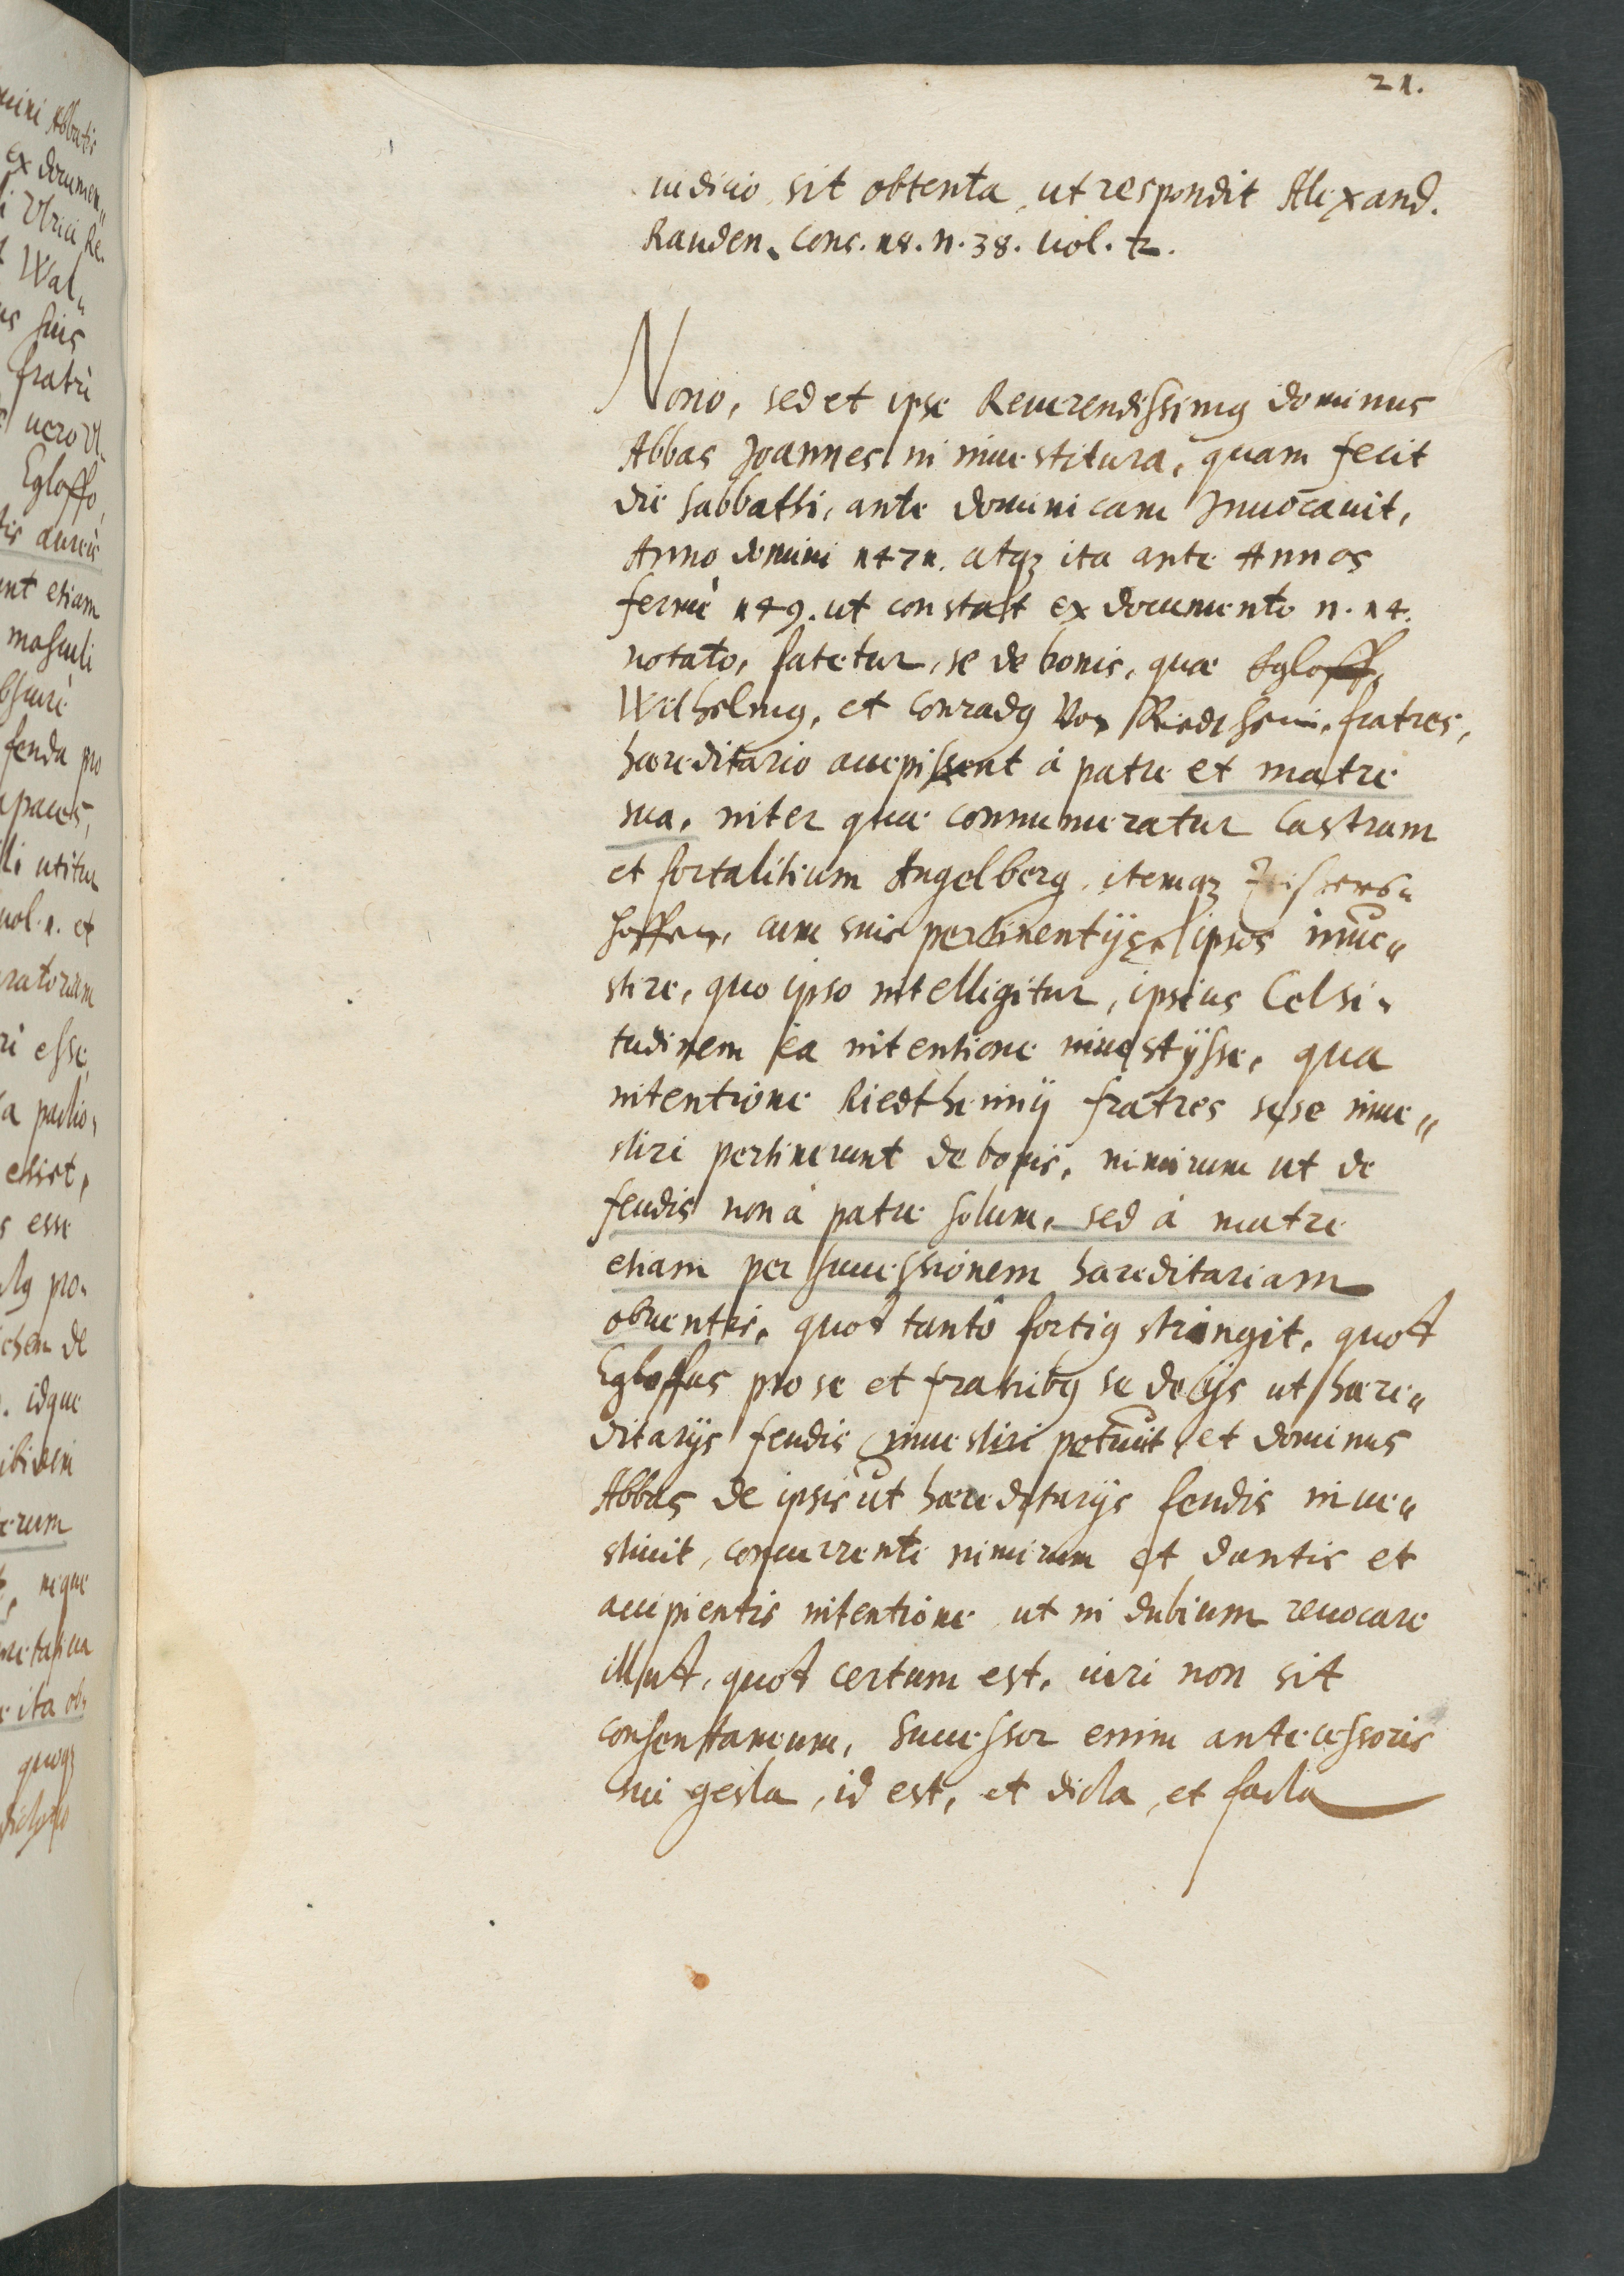 21.
iudicio sit obtenta, ut respondit Alexand.
Rauden. Cons. 18. n. 38. vol. 2.
Nono, sed et ipse Reuerendissimus dominus
Abbas Joannes in inuestitura, quam fecit
die sabbathi, ante dominicam Jnuocauit,
Anno domini 1471. atque ita ante Annos
fermè 149. ut constat ex documento n. 14.
notato, fatetur, se de bonis, quæ Egloff,
Wilhelmus, et Conradus von Riedtheim, fratres,
hæreditario accepissent à patre et matre
sua, inter quæ connumeratur Castrum
et fortalitium Angelberg, itemque
hoffen, cum suis pertinentijs, ipsos inue„
stire, quo ipso intelligitur, ipsius Celsi„
tudinem ea intentione inuestijsse, qua
intentione Riedtheimij fratres sese inue„
stiri pertinerunt de bonis, nimirum ut de
feudis non à patre solum, sed à matre
etiam per successionem hæreditariam
obuentis, quod tantò fortius stringit, quod
Egloffus pro se et fratribus se de ijs ut hære„
ditarijs feudis inuestiri petiuit, et dominus
Abbas de ipsis ut hæreditarijs feudis inue„
stiuit, concurrente nimirum et dantis et
accipientis intentione ut in dubium reuocare
illud, quod certum est, iuri non sit
consentaneum, Successor enim antecessoris
sui gesta, id est, et dicta, et facta
mini Abbatis
ex documen„
Ulrici Re.
Wal„
suis
fratri
uero Ul.
Egloffo,
aureis
etiam
masculi
feuda pro
utitur
vol. 1. et
esse,
esse
pro„
de
idque
ibidem
neque
ita ob„
quoque